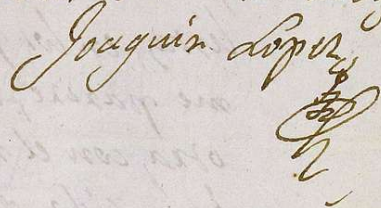 Joaquin Lopez